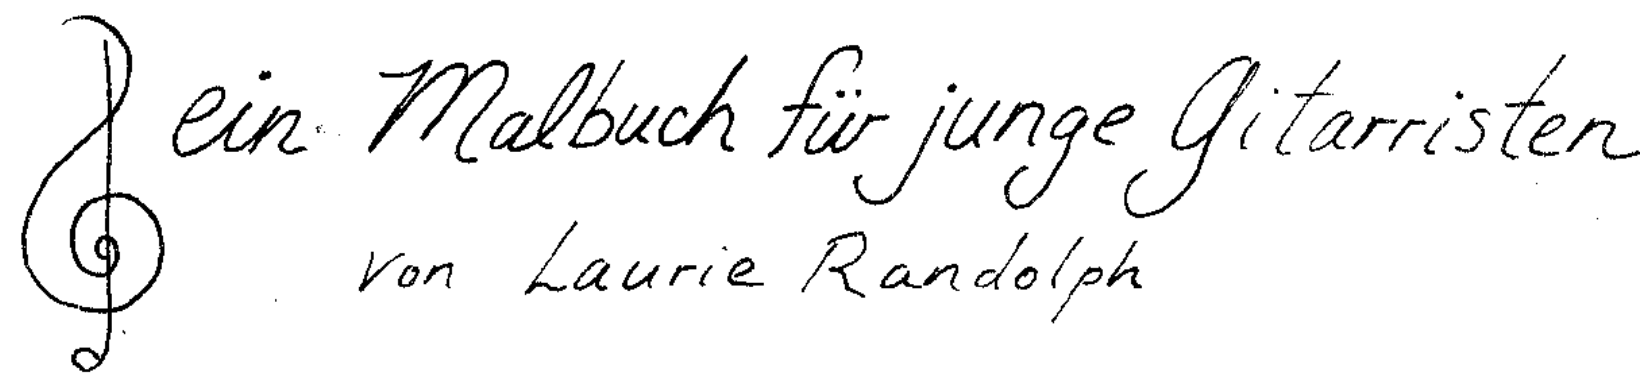 ein Malbuch für junge Gitarristen
von Laurie Randolph